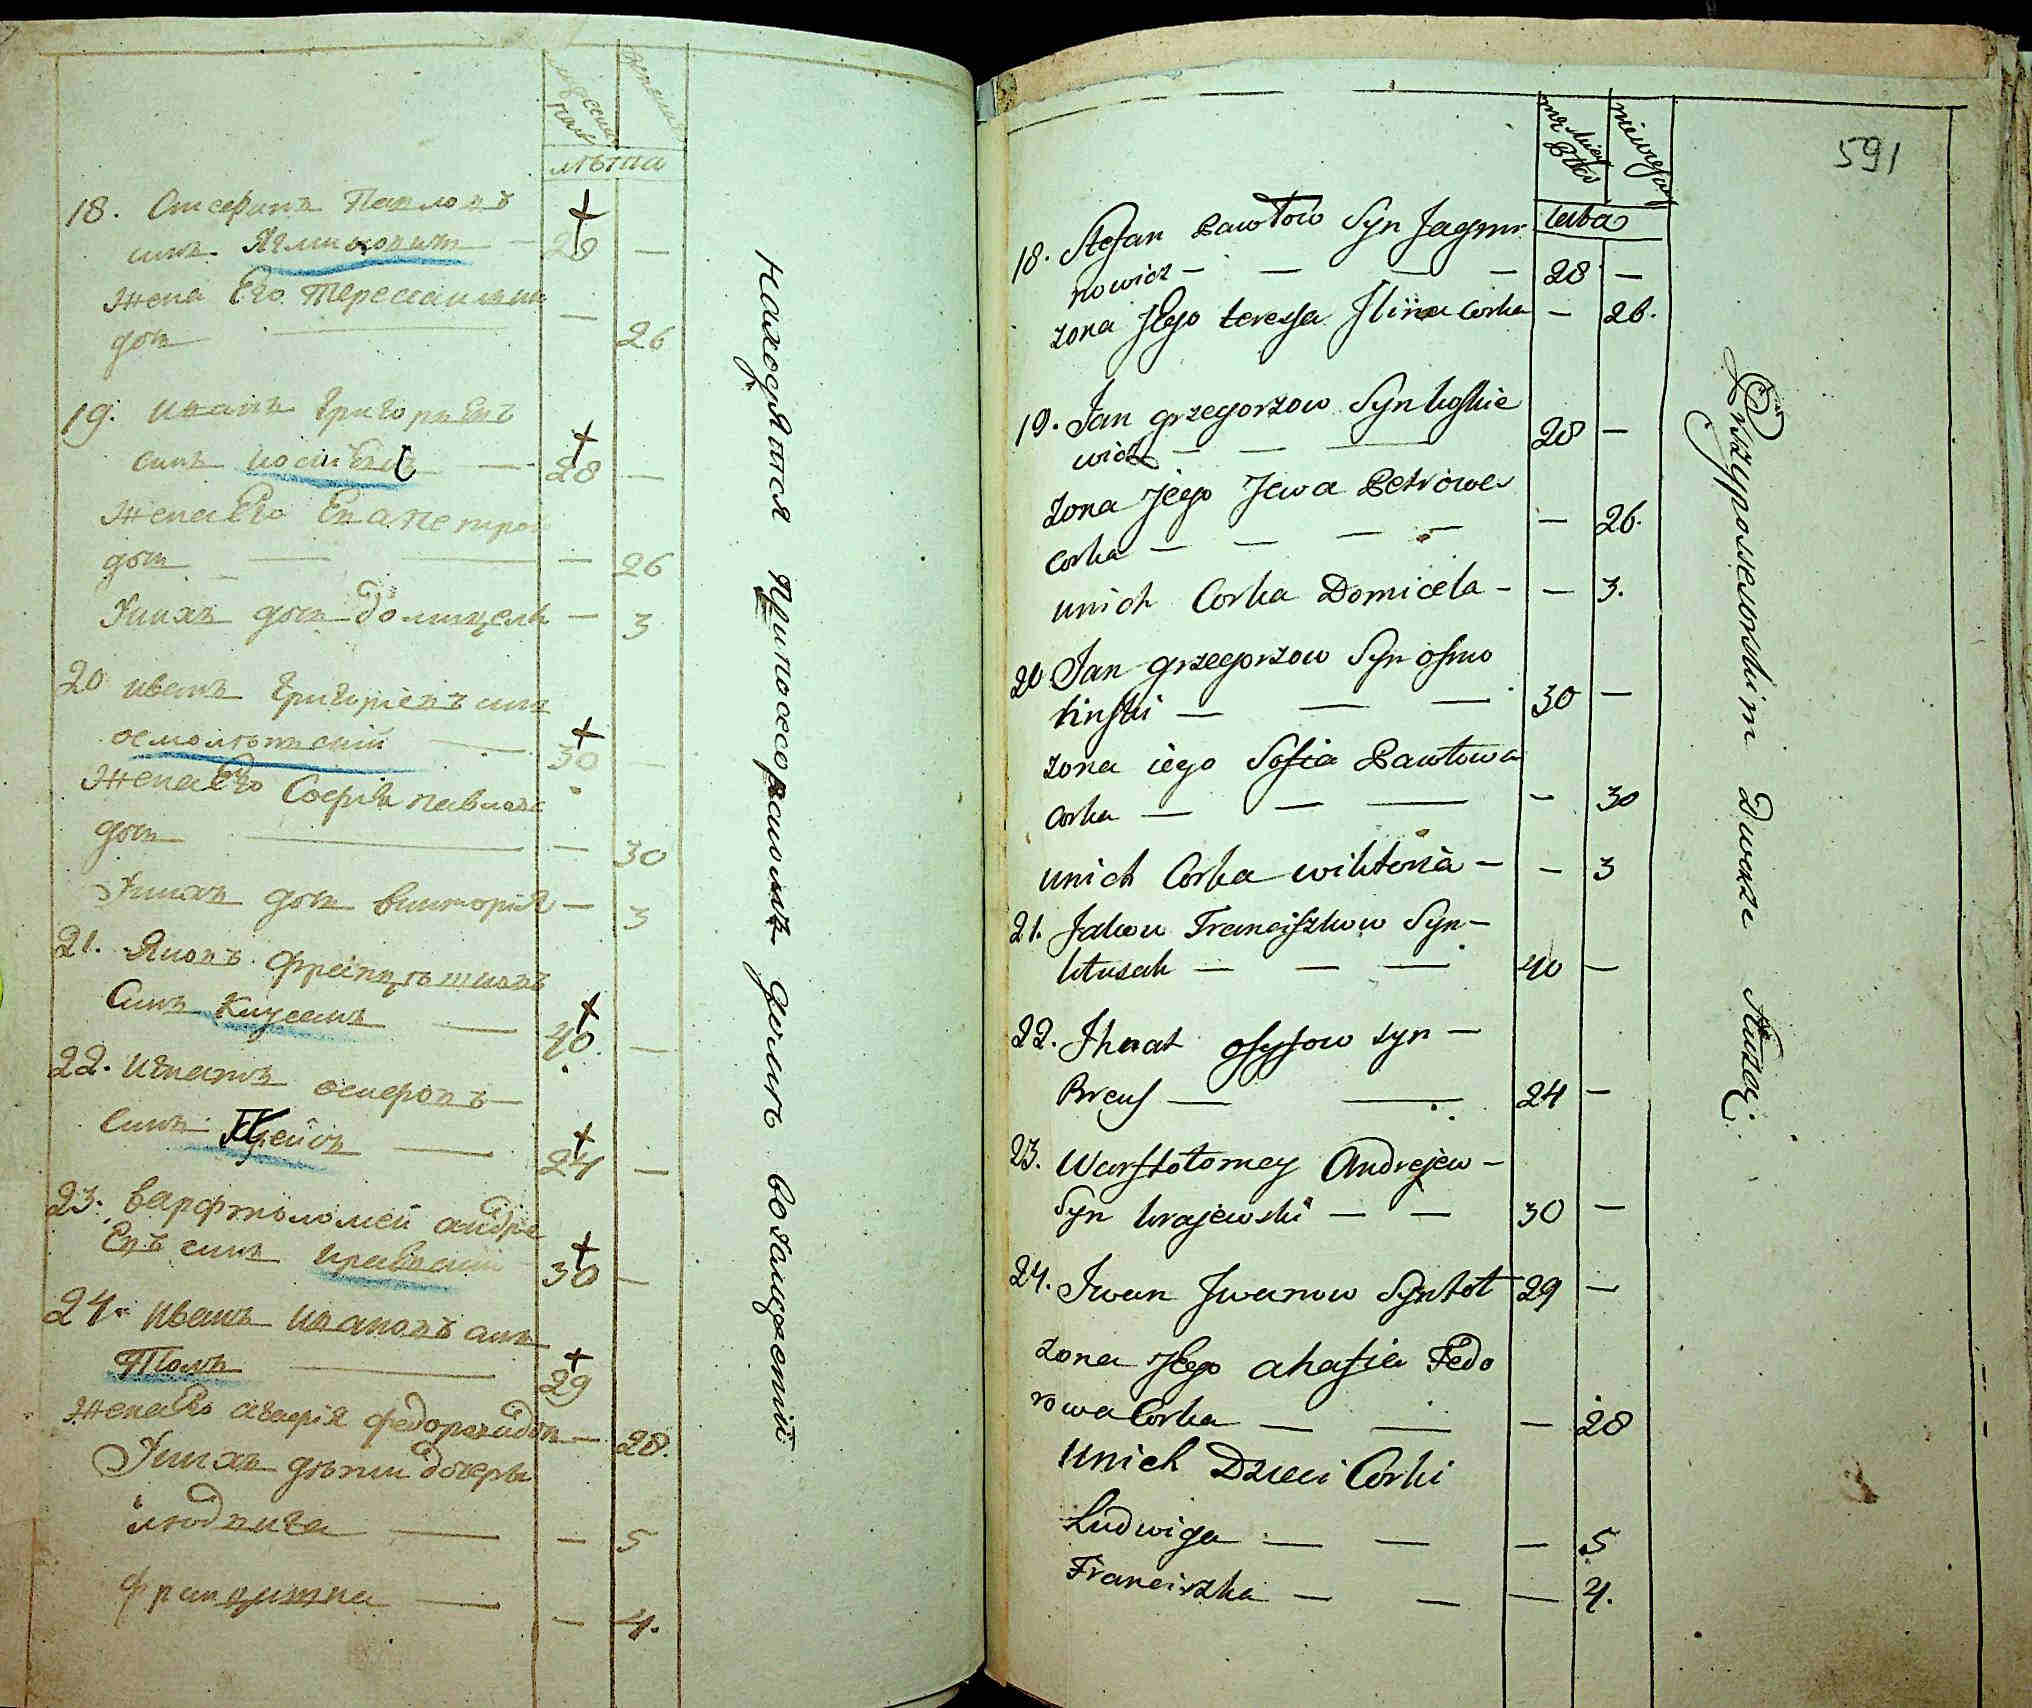 мужескій
полъ
женскій
лѣта
18. Стефанъ Павловъ
синъ Ягминовичъ — 28 —
жена Его Тересса илїина
дочь — — 26
19. иванъ Григорьевъ
синъ — 28 —
жена Его Ева петрова
дочь — — — 26
У нихъ дочь Домицеля — 3
20 иванъ Григоріевъ синъ
осмольскій — 30 —
жена Его Софія павлова
дочь — — 30
У нихъ дочь викторія — 3
21. Яковъ Францѣшковъ
Синъ Клусакъ — 40. —
22. игнатъ осиповъ —
Синъ — 24 —
23. варфтоломей андре
Евъ синъ краевскій 30 —
24. иванъ ивановъ синъ
Толь — 29
жена Его агафія федорова дочь — 28.
У нихъ дѣти дочеры
людвига — — 5
францишка — — 4.
находятся При посессорскомъ домѣ во услуженіи
591
męskiey
Płci
niewiesciey
Lata
18. Stefan Pawłow Syn Jagmi
nowicz — — — — 28 —
zona Jego teressa Ilina Corka — 26.
19. Jan grzegorzow Syn koskie
wicz — — — 28 —
zona Jego Jewa Petrowa
Corka — — — — — 26.
unich Corka Domicela — — 3.
20 Jan grzegorzow Syn osmo
linski — — — 30 —
zona iego Sofia Pawłowa
Corka — — — — 30
unich Corka wiktoria — — 3
21. Jakow Franciszkow Syn —
kłusak — — — 40 —
22. Ihnat osypow syn —
— — 24 —
23. Warftołomey Andrejew —
Syn krajewski — — 30 —
24. Iwan Iwanow Syn tol 29 —
zona Jego ahafia Fedo
rowa Corka — — — 28
unich Dzieci Corki
Ludwiga — — — 5
Franciszka — — — 4.
Przy possesorskim Dworze służący